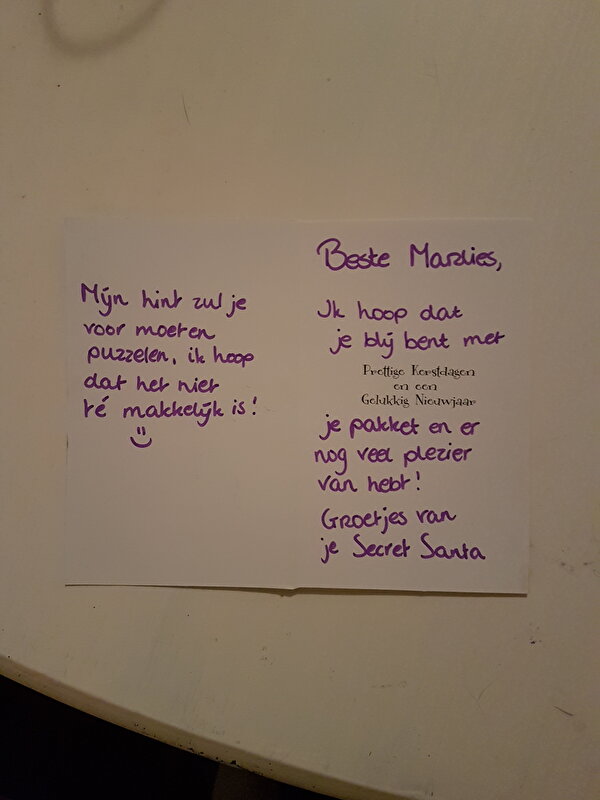 Mijn hint zul je
voor moeten
puzzelen, ik hoop
dat het niet
té makkelijk is!
Beste Marlies,
Ik hoop dat
je blij bent met
Prettige Kerstdagen
en een
Gelukkig Nieuwjaar
je pakket en er
nog veel plezier
van hebt!
Groetjes van
je Secret Santa